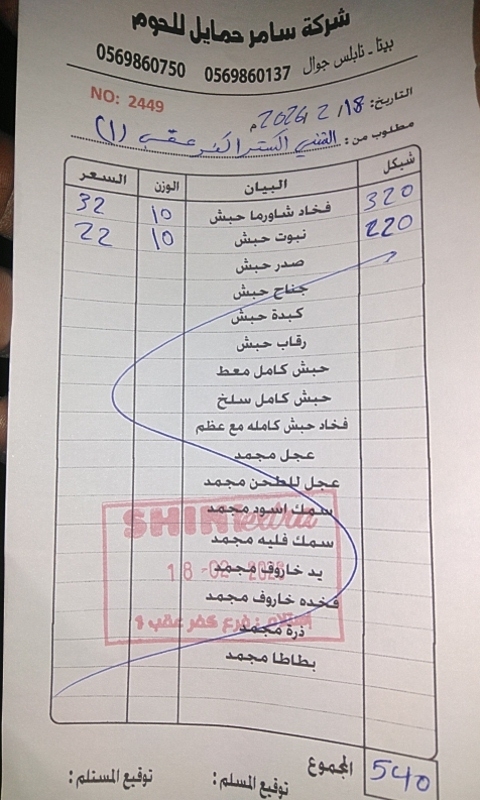 شركة سامر حمايل للحوم
بيتا - نابلس جوال 0569860137 0569860750
NO: 2449
التاريخ: 18/ 2/ 2026م
مطلوب من: اكسترا كفر عقب (1)
شيكل البيان الوزن السعر
320 فخاد شاورما حبش 10 32
220 نبوت حبش 10 22
صدر حبش
جناح حبش
كبدة حبش
رقاب حبش
حبش كامل معط
حبش كامل سلخ
فخاد حبش كامله مع عظم
عجل مجمد
عجل للطحن مجمد
سمك اسود مجمد
سمك فليه مجمد
يد خاروف مجمد
فخده خاروف مجمد
ذرة مجمد
بطاطا مجمد
SHINI extra
18 -02- 2026
استلام : فرع كفر عقب 1
540 المجموع
توقيع المسلم: توقيع المستلم: